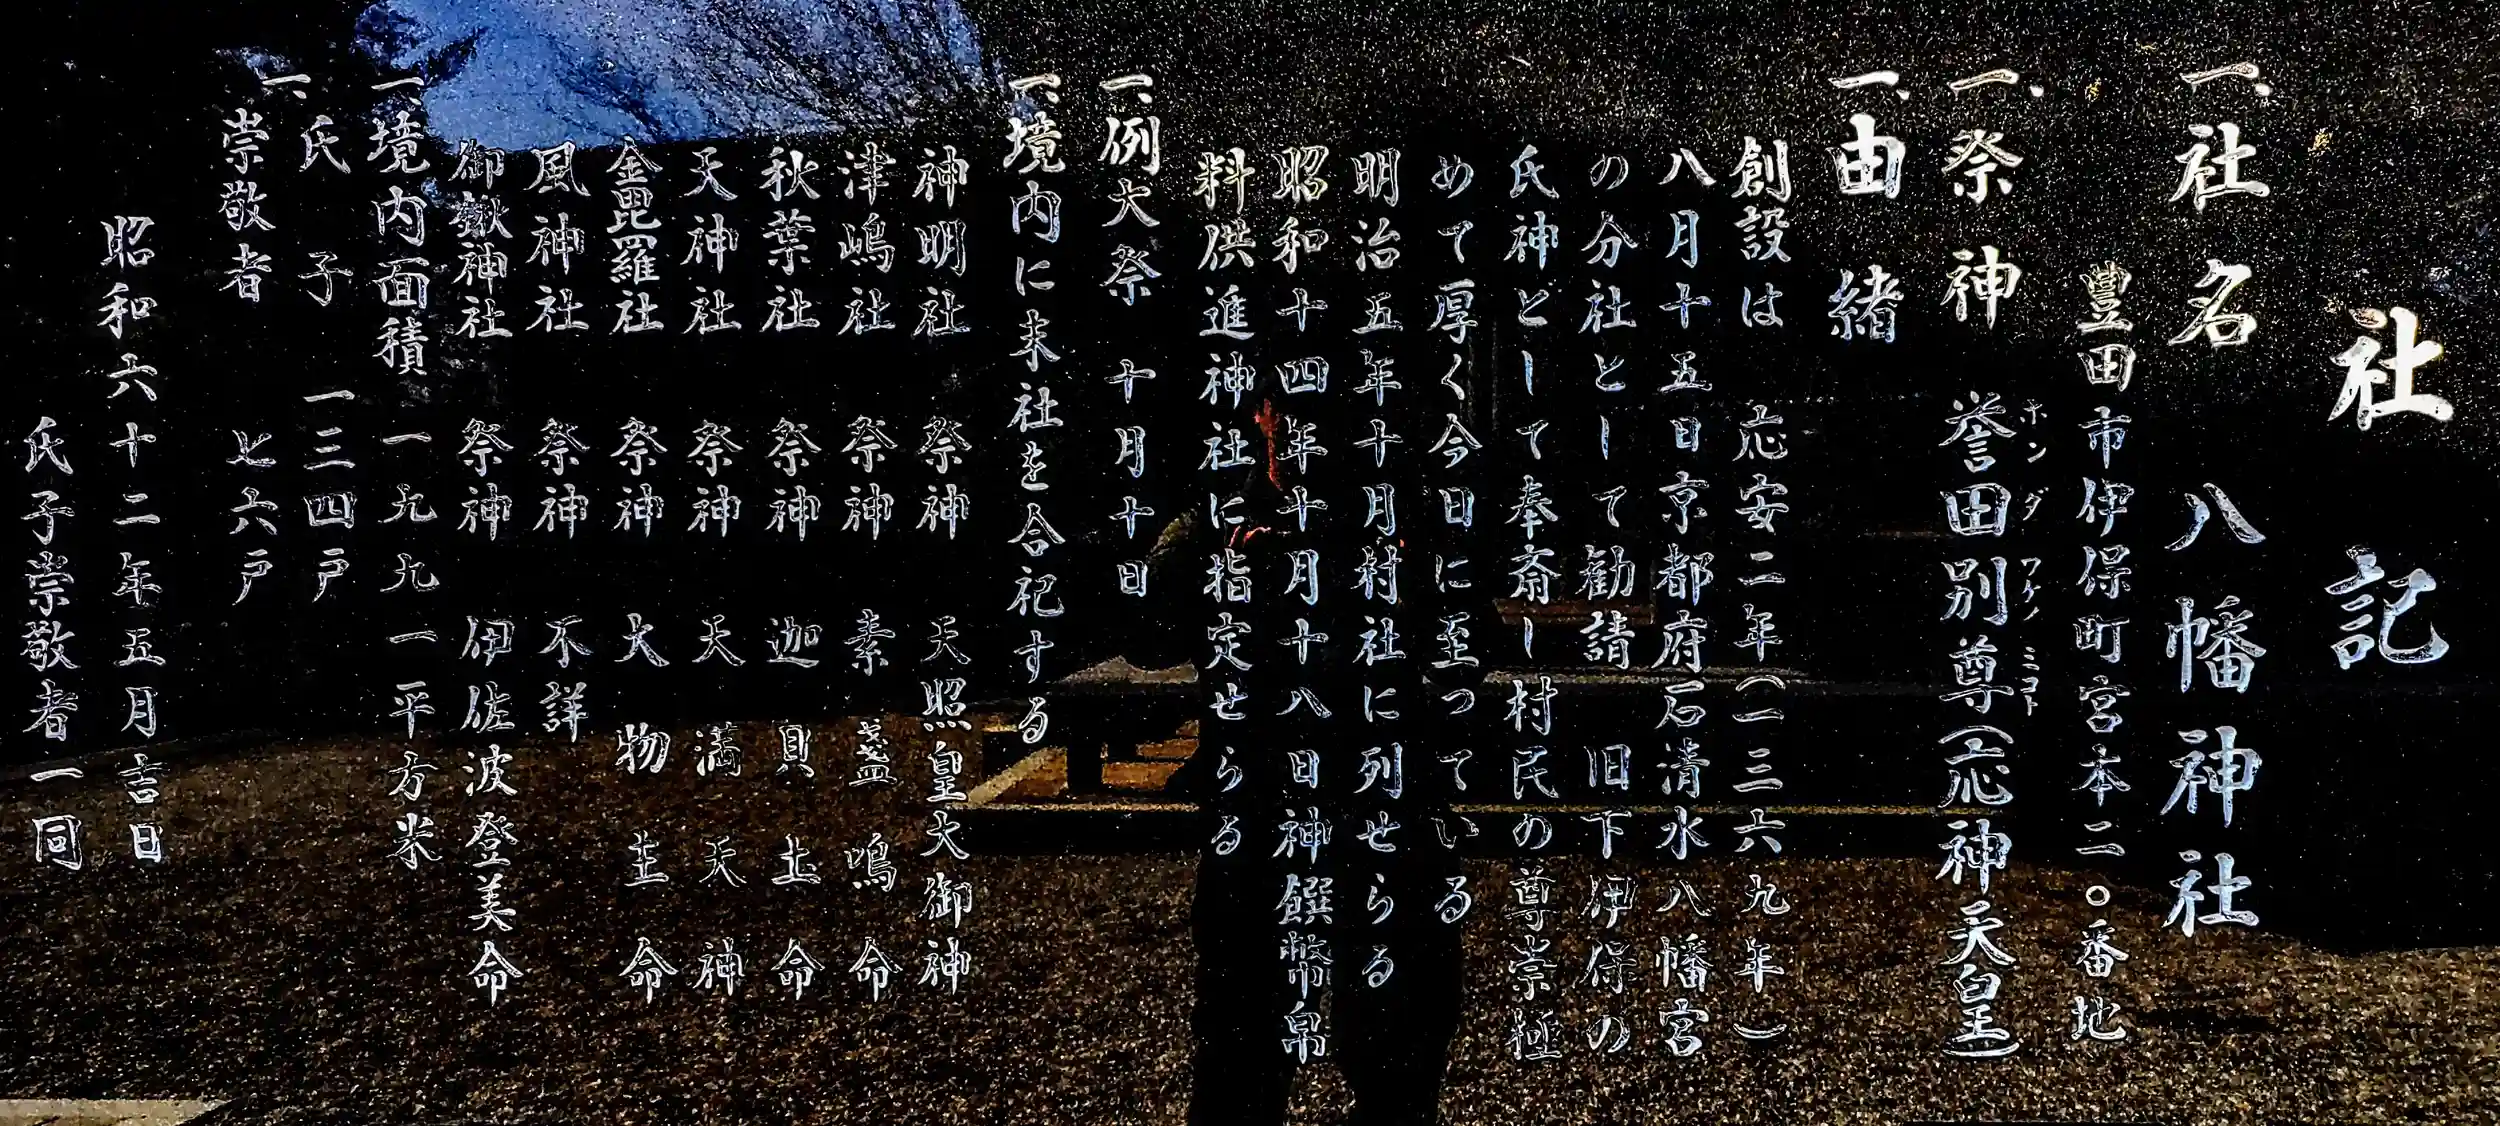 社記
一、社名 八幡神社
豊田市伊保町宮本二〇番地
一、祭神 誉田別尊(応神天皇)
ホンダワケノミコト
一、由緒
創設は 応安二年(一三六九年)
八月十五日京都府石清水八幡宮
の分社として勧請 旧下伊保の
氏神どして奉斎し村民の尊崇極
めて厚く今日に至っている
明治五年十月村社に列せらる
昭和十四年十月十八日神饌幣帛
料供進神社に指定せらる
一、例大祭 十月十日
一、境内に末社を合祀する
神明社 祭神 天照皇大御神
津嶋社 祭神 素盞嗚命
秋葉社 祭神 迦具土命
天神社 祭神 天満天神
金毘羅社 祭神 大物主命
風神社 祭神 不詳
御鍬神社 祭神 伊佐波登美命
一、境内面積 一九九一平方米
一、氏子 一三四戸
崇敬者 七六戸
昭和六十二年五月吉日
氏子崇敬者一同